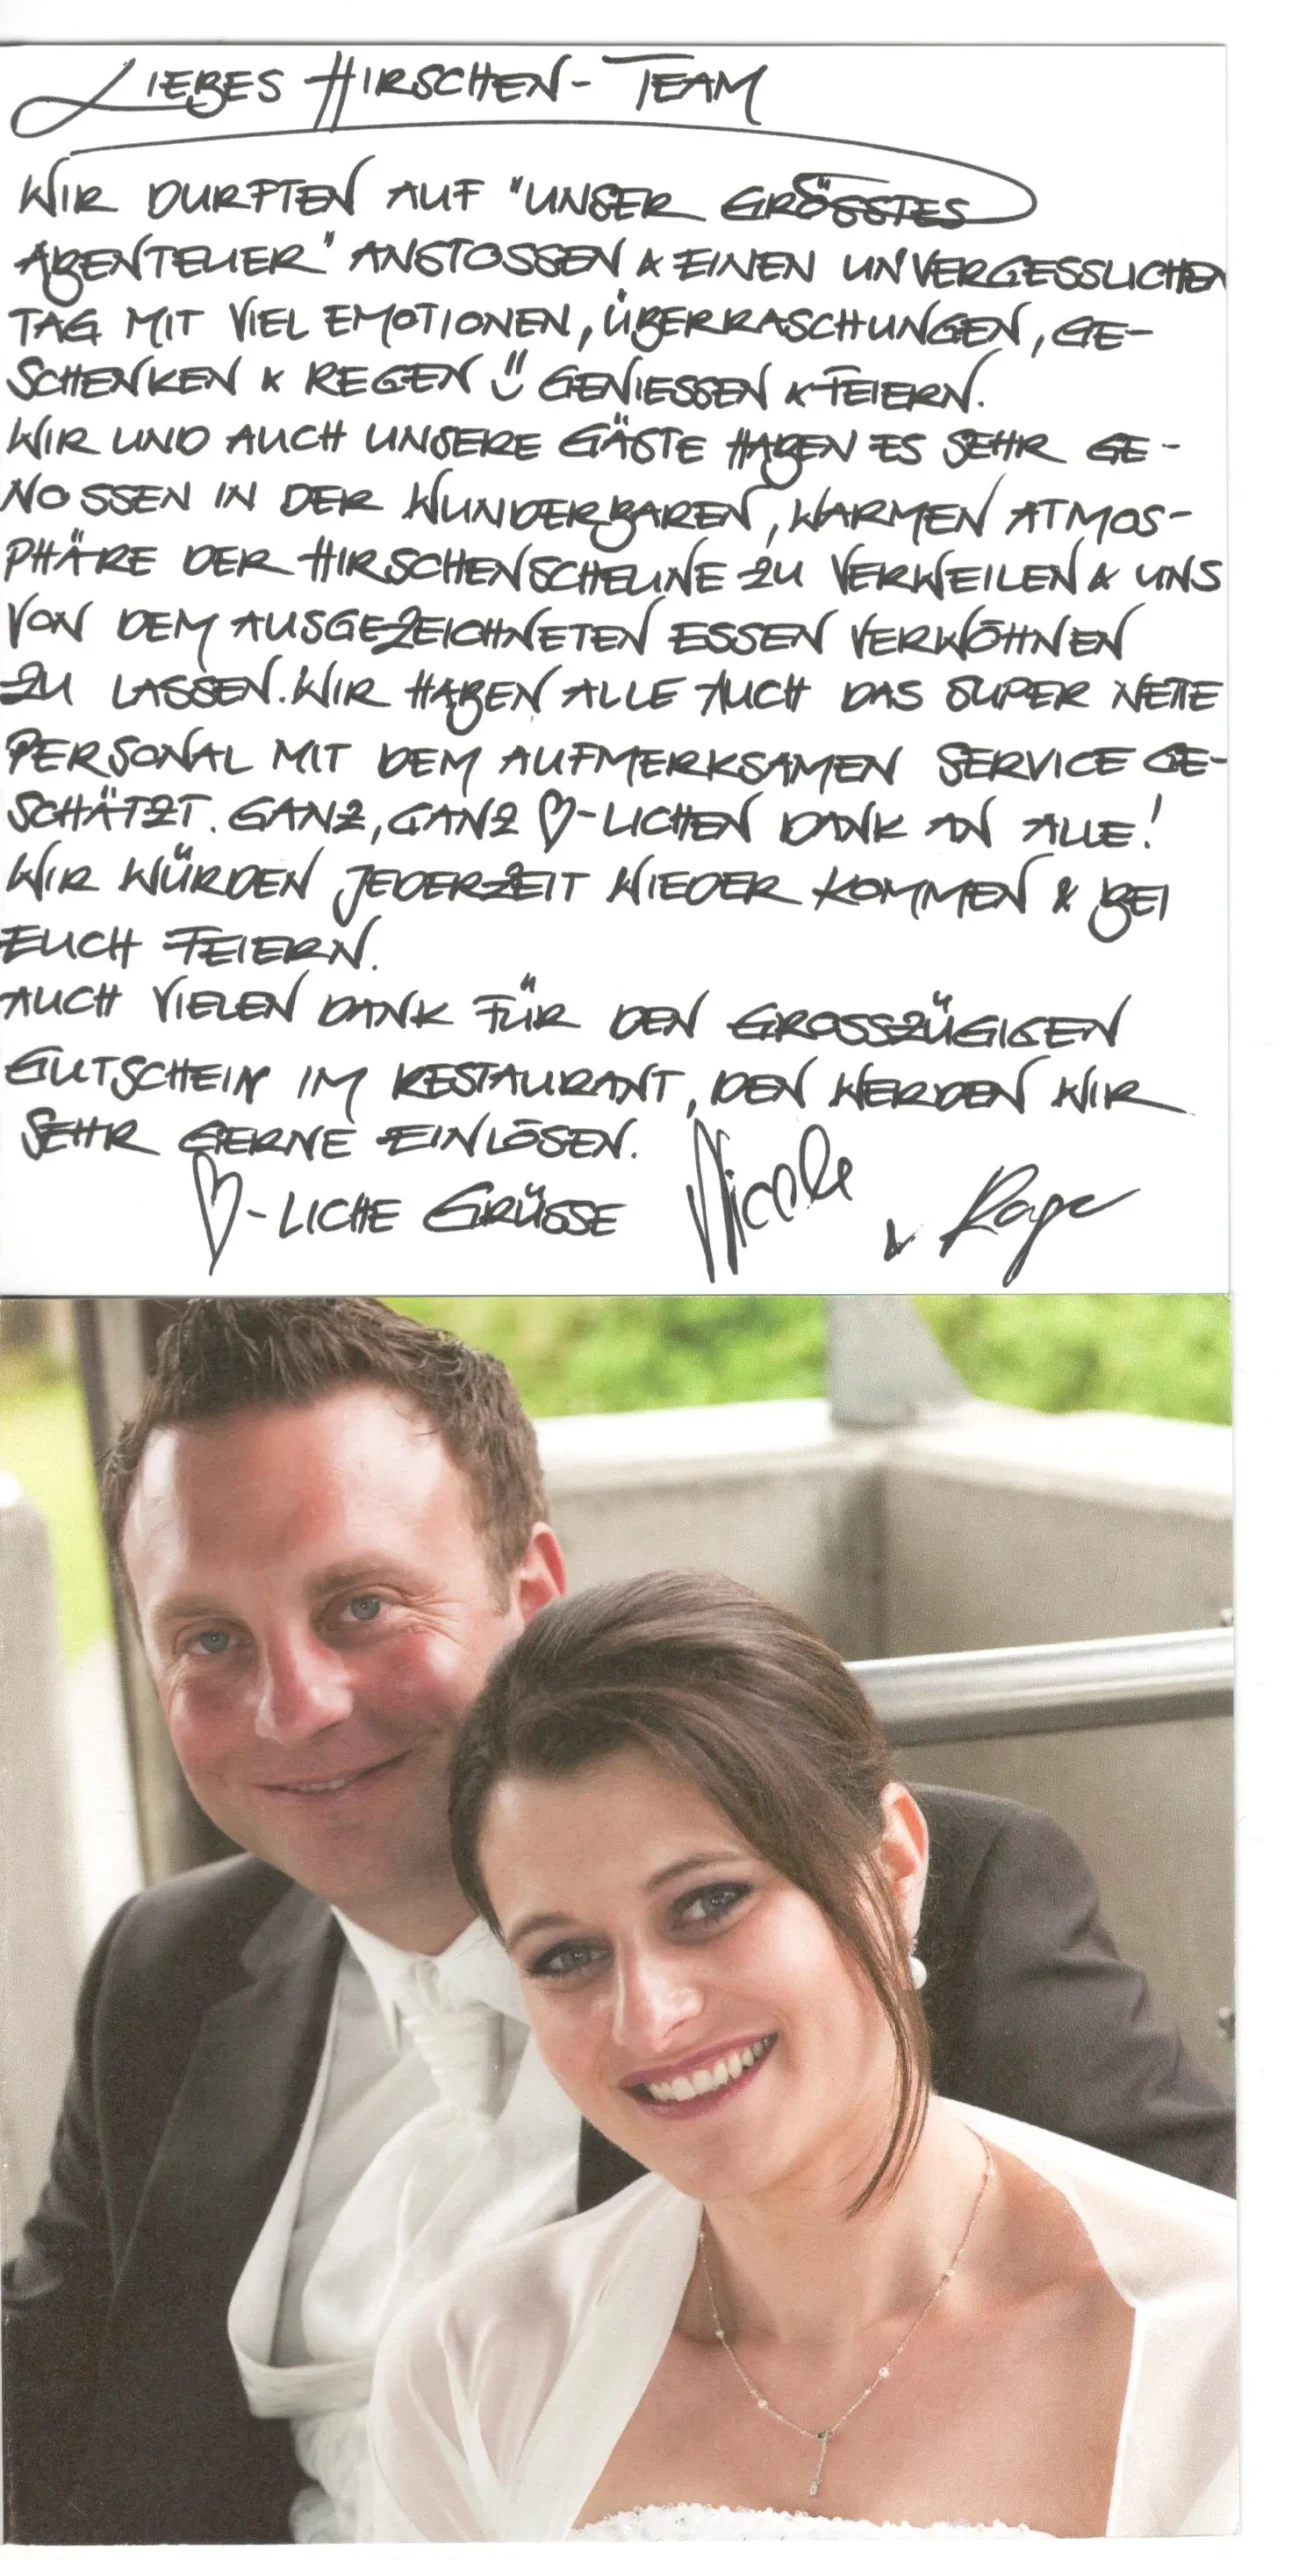 LIEBES HIRSCHEN-TEAM
WIR DURFTEN AUF "UNSER GRÖSSTES
ABENTEUER" ANSTOSSEN & EINEN UNVERGESSLICHEN
TAG MIT VIEL EMOTIONEN, ÜBERRASCHUNGEN, GE-
SCHENKEN & REGEN Ü GENIESSEN & FEIERN.
WIR UND AUCH UNSERE GÄSTE HABEN ES SEHR GE-
NOSSEN IN DER WUNDERBAREN, WARMEN ATMOS-
PHÄRE DER HIRSCHENSCHEUNE ZU VERWEILEN & UNS
VON DEM AUSGEZEICHNETEN ESSEN VERWÖHNEN
ZU LASSEN. WIR HABEN ALLE AUCH DAS SUPER NETTE
PERSONAL MIT DEM AUFMERKSAMEN SERVICE GE-
SCHÄTZT. GANZ, GANZ ♡-LICHEN DANK AN ALLE!
WIR WÜRDEN JEDERZEIT WIEDER KOMMEN & BEI
EUCH FEIERN.
AUCH VIELEN DANK FÜR DEN GROSSZÜGIGEN
GUTSCHEIN IM RESTAURANT, DEN WERDEN WIR
SEHR GERNE EINLÖSEN.
♡-LICHE GRÜSSE Nicole & Roger